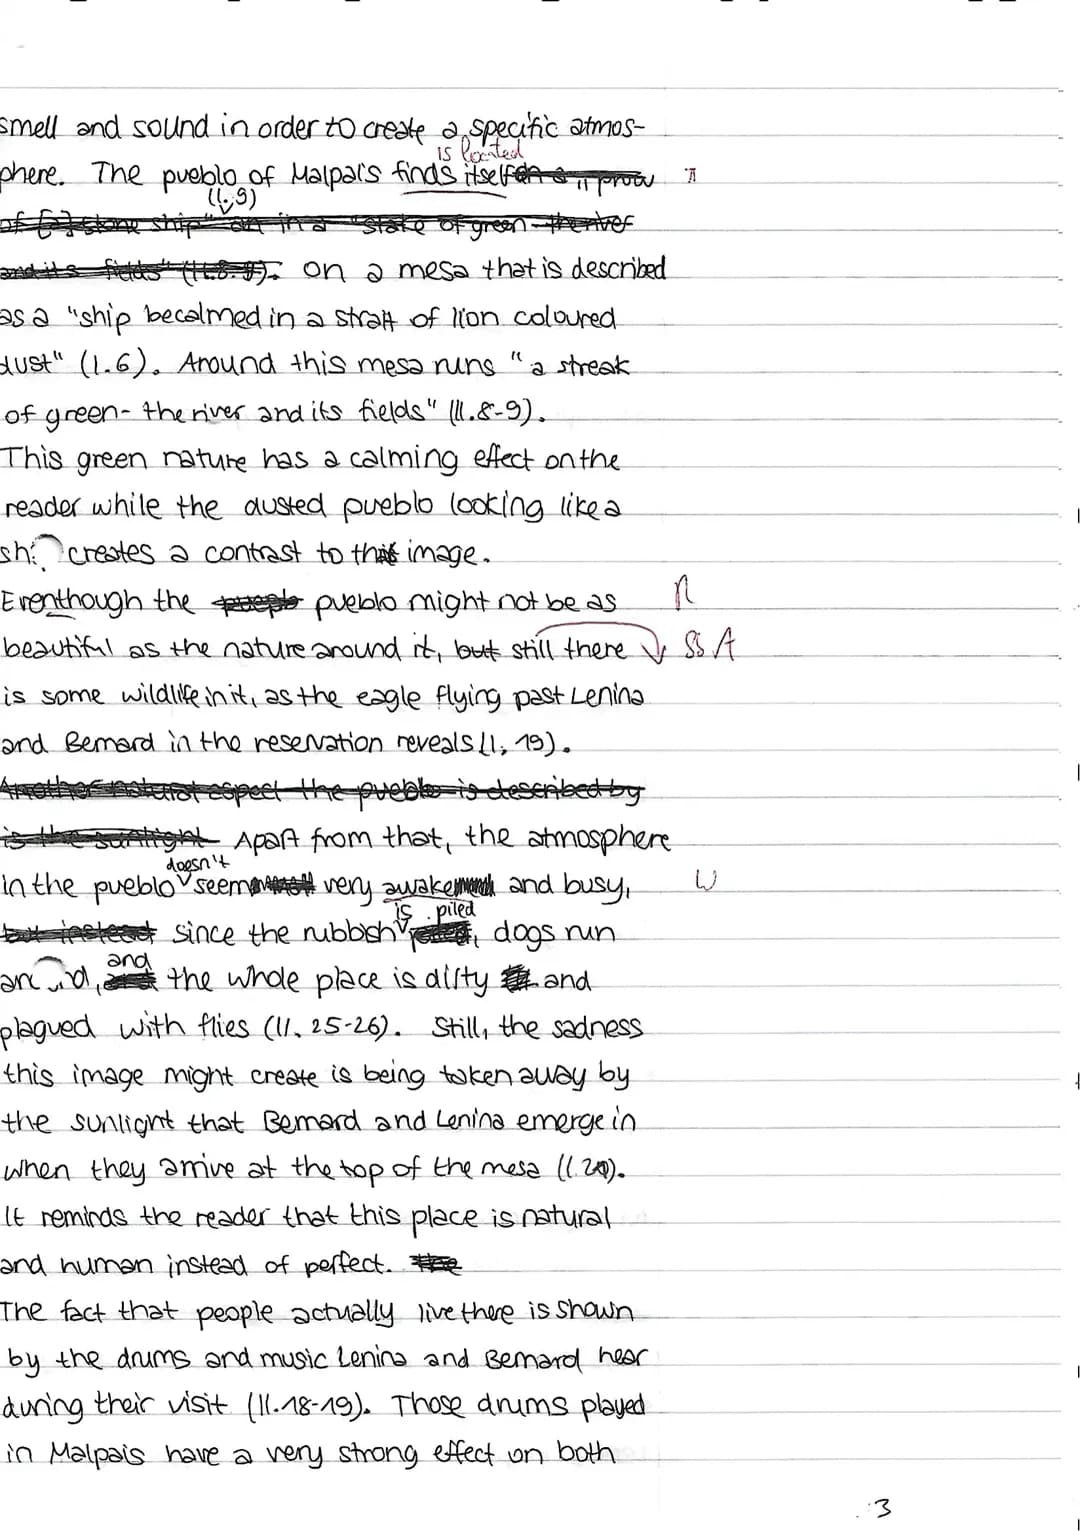 smell and sound in order to create a specific atmos-
is located
phere. The pueblo of Malpais finds itself on a "prow
(l. 9)
of [a] stone ship" an in a "stake of green - the river
and its fields" (ll. 8-9). on a mesa that is described
as a "ship becalmed in a strait of lion coloured
dust" (l.6). Around this mesa runs "a streak
of green- the river and its fields" (ll.8-9).
This green nature has a calming effect on the
reader while the dusted pueblo looking like a
creates a contrast to that image.
Eventhough the pueblo might not be as
beautiful as the nature around it, but still there SSA
is some wildlife in it, as the eagle flying past Lenina
and Bernard in the reservation reveals (l. 19).
Another natural aspect the pueblo is described by
is the sunlight Apart from that, the atmosphere
doesn't
in the pueblo seem very awake and busy, W
is piled
but instead since the rubbish, dogs run
and
the whole place is dirty and
plagued with flies (ll. 25-26). Still, the sadness
this image might create is being taken away by
the sunlight that Bernard and Lenina emerge in
when they arrive at the top of the mesa (l. 20).
It reminds the reader that this place is natural
and human instead of perfect. The
The fact that people actually live there is shown
by the drums and music Lenina and Bernard hear
during their visit (ll.18-19). Those drums played
in Malpais have a very strong effect on both
3